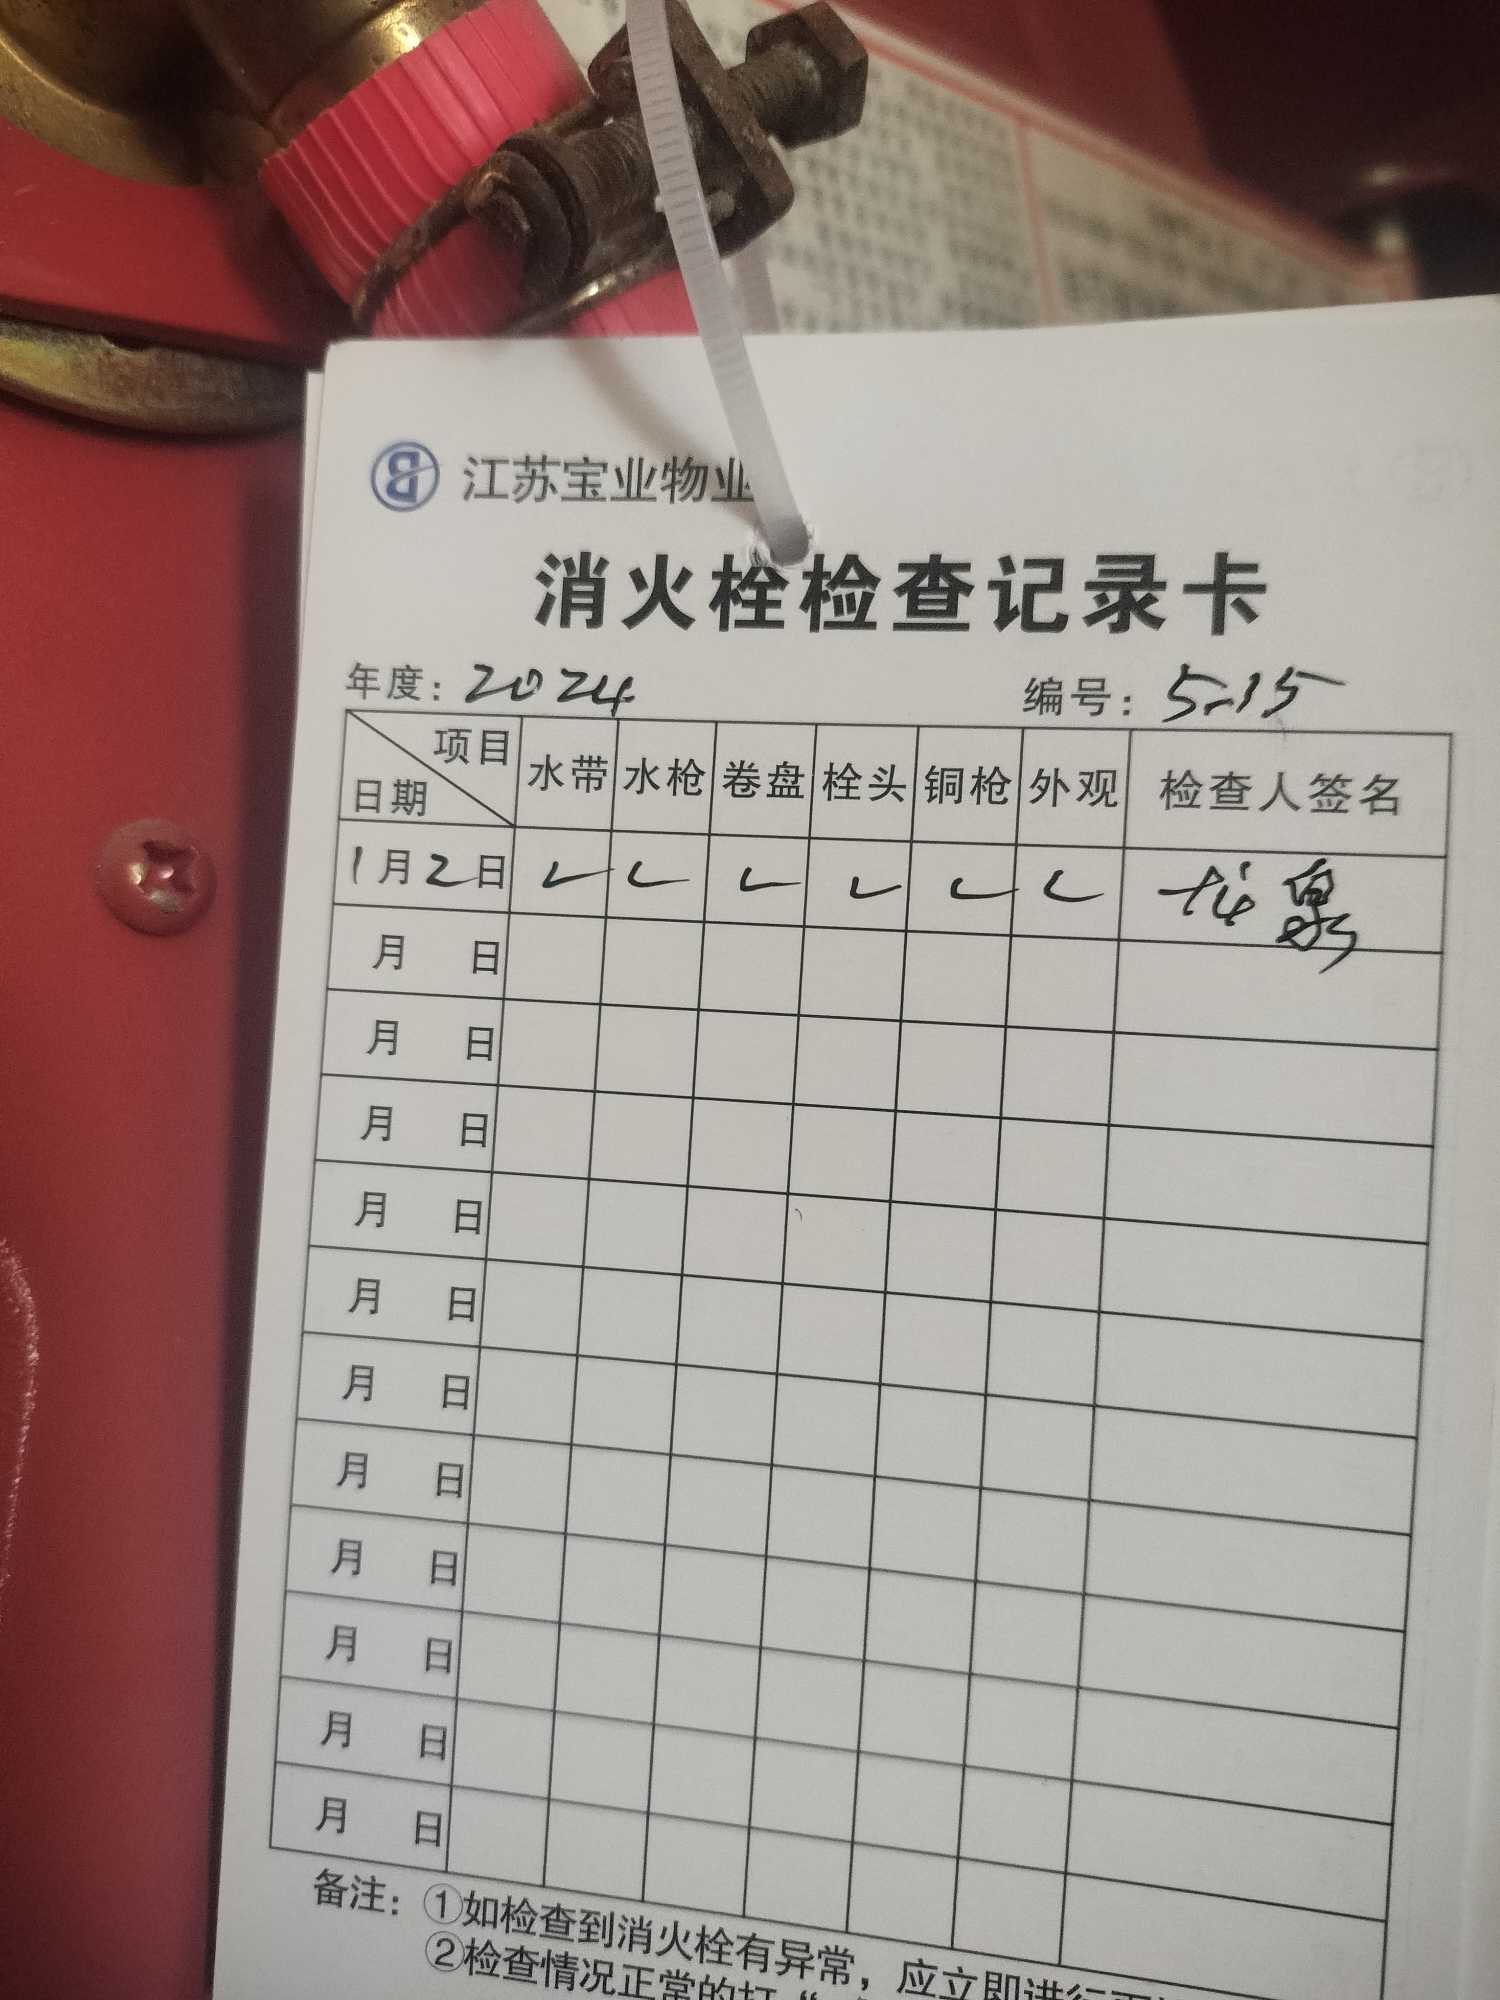 江苏宝业物业
消火栓检查记录卡
年度：2024 编号：5-15
项目
日期 水带 水枪 卷盘 栓头 铜枪 外观 检查人签名
1月2日 ✓ ✓ ✓ ✓ ✓ ✓ 泉
月 日
月 日
月 日
月 日
月 日
月 日
月 日
月 日
月 日
月 日
月 日
备注：①如检查到消火栓有异常，应立即进行
②检查情况正常的打“